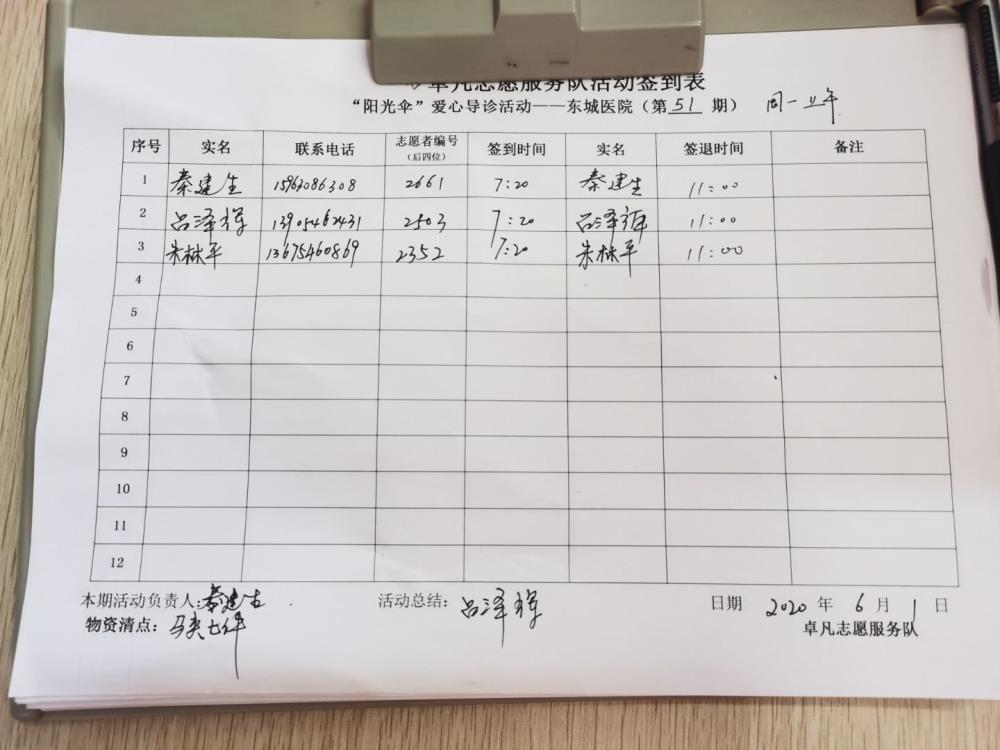 卓凡志愿服务队活动签到表
“阳光伞”爱心导诊活动——东城医院（第 51 期） 周一上午
序号 实名 联系电话 志愿者编号（后四位） 签到时间 实名 签退时间 备注
1 秦建生 15963086308 2661 7:20 秦建生 11:00
2 吕泽辉 13905462431 2503 7:20 吕泽辉 11:00
3 朱林平 13675460869 2352 7:20 朱林平 11:00
4
5
6
7
8
9
10
11
12
本期活动负责人：秦建生 活动总结：吕泽辉 日期 2020 年 6 月 1 日
物资清点：马夹七件 卓凡志愿服务队